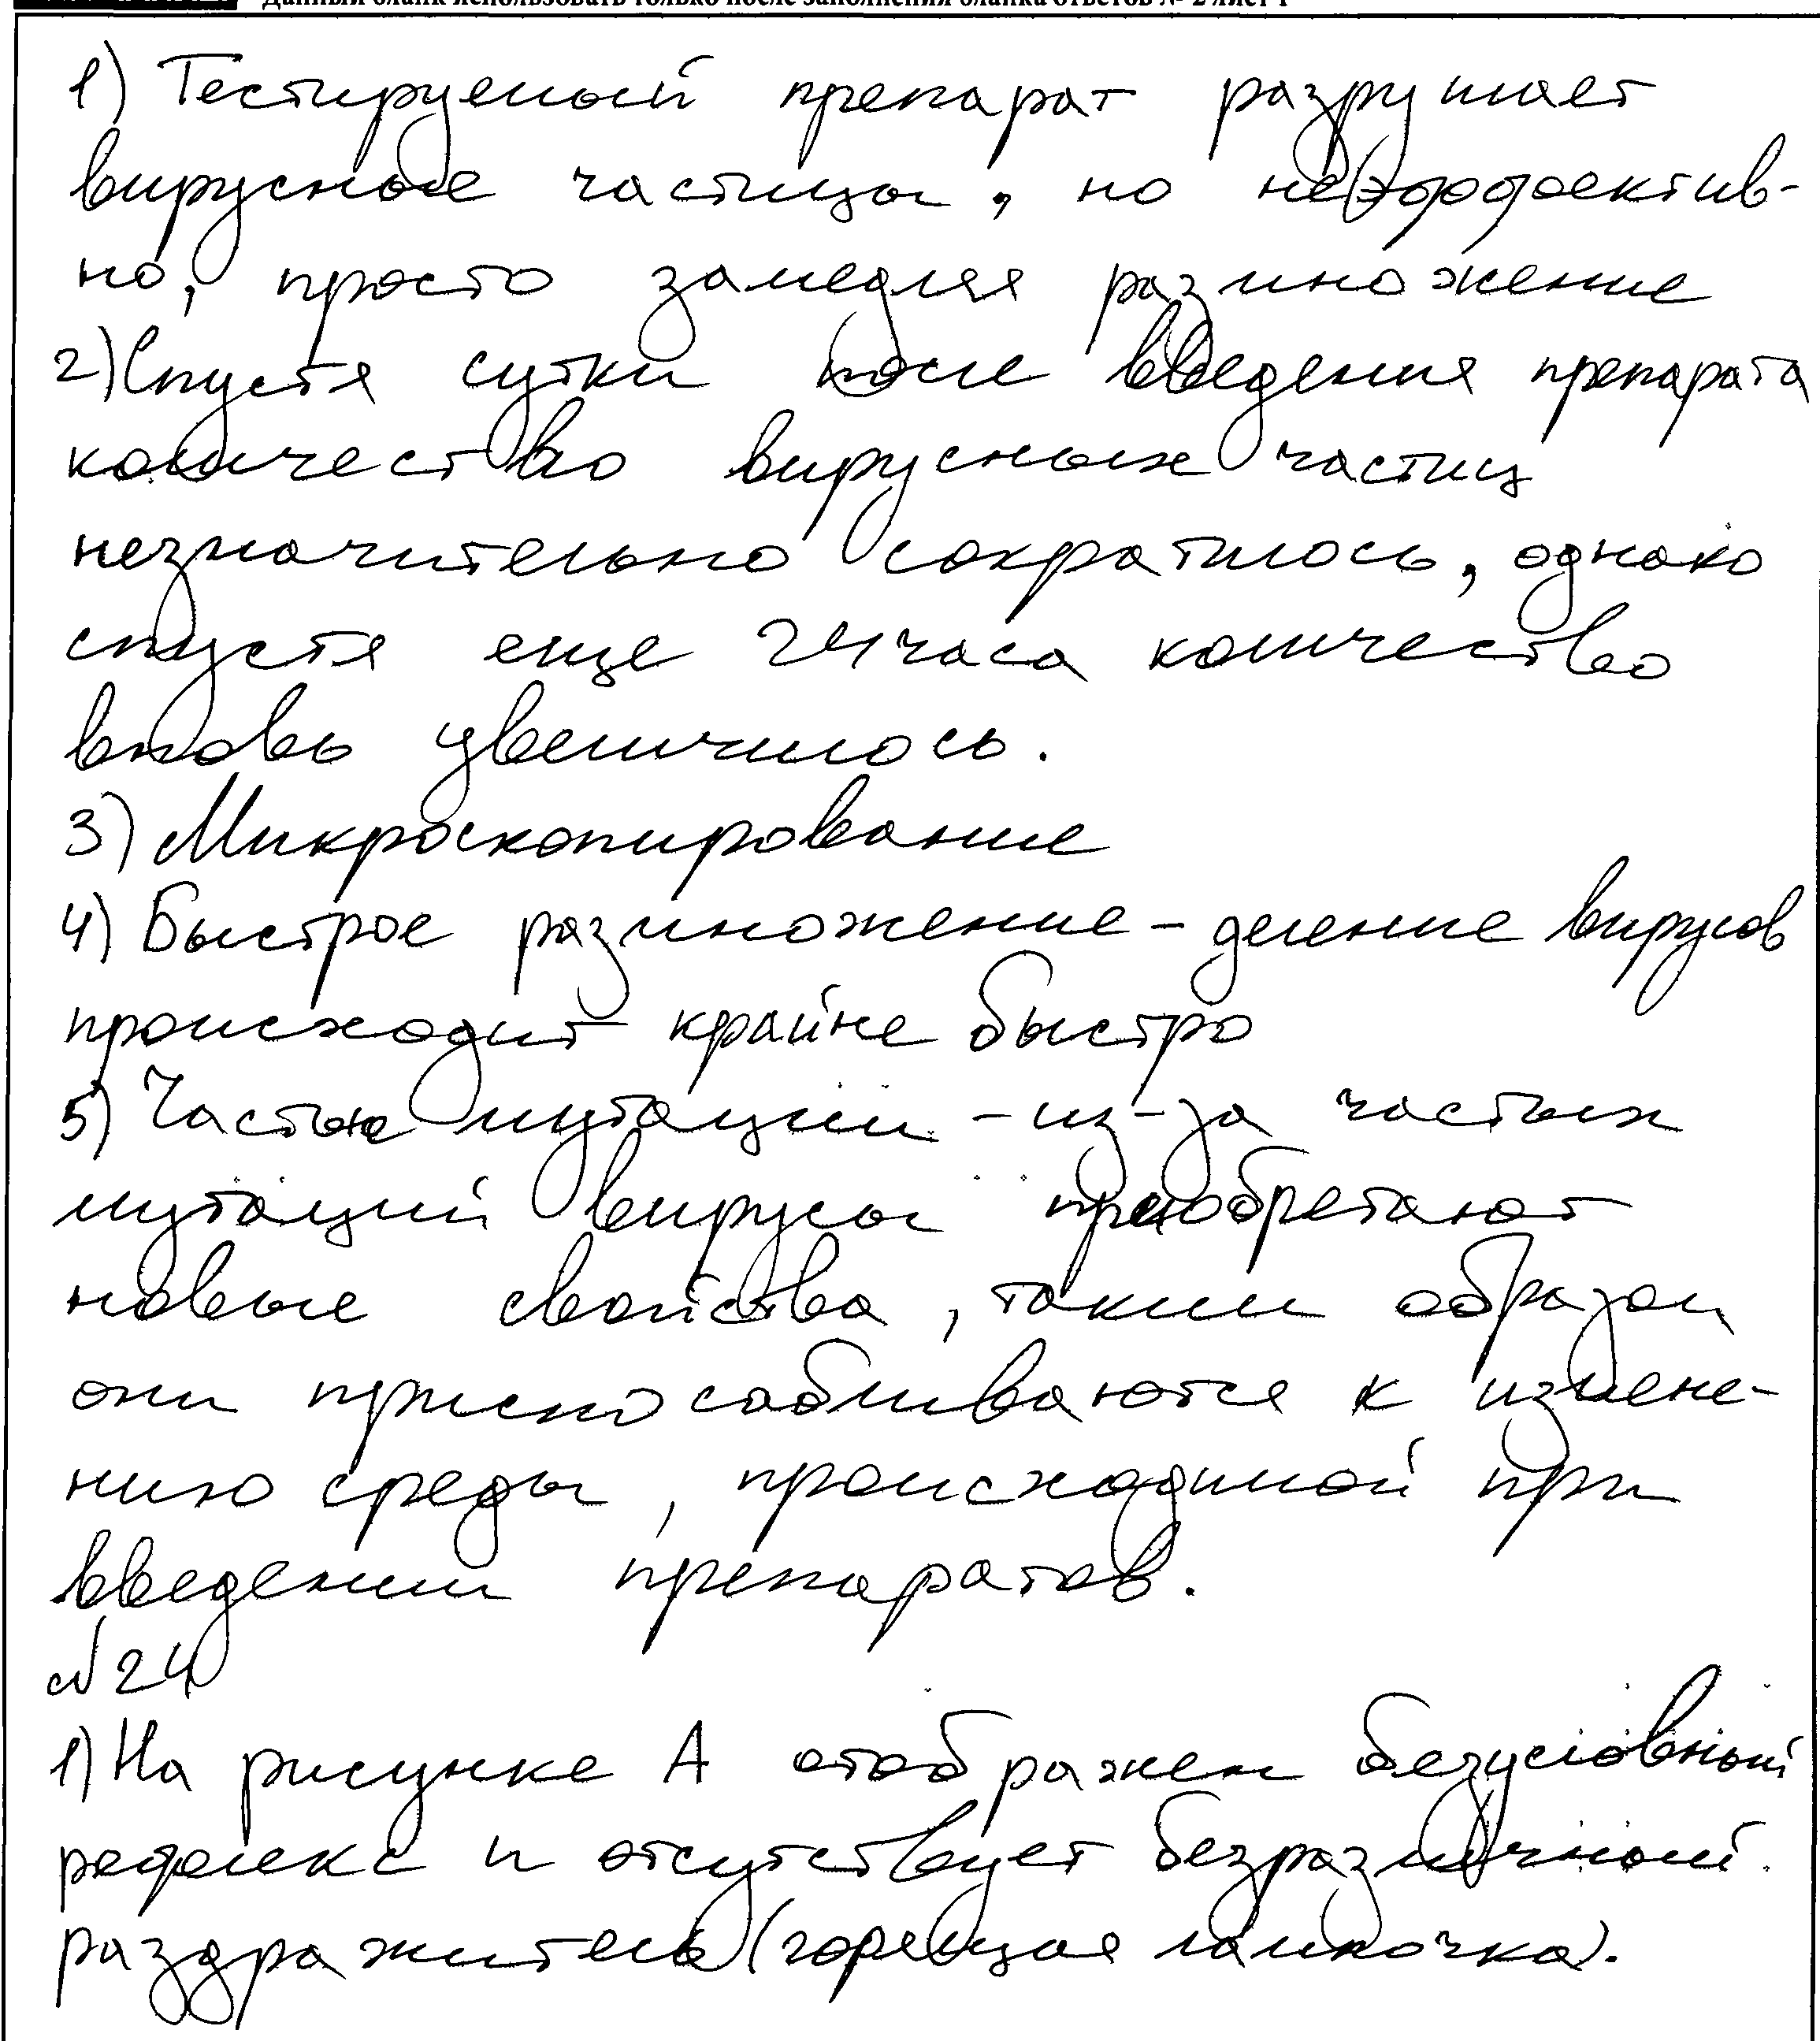 Данный бланк использовать только после заполнения бланка ответов № 2 лист 1
1) Тестируемый препарат разрушает
вирусные частицы, но неэффектив-
но, просто замедляя размножение
2) Спустя сутки после введения препарата
количество вирусных частиц
незначительно сократилось, однако
спустя еще 24 часа количество
вновь увеличилось.
3) Микроскопирование
4) Быстрое размножение - деление вирусов
происходит крайне быстро
5) Частые мутации - из-за частых
мутаций вирусы приобретают
новые свойства, таким образом
они приспосабливаются к измене-
нию среды, происходимой при
введении препаратов.
№24
1) На рисунке А отображен безусловный
рефлекс и отсутствует безразличный
раздражитель (горящая лампочка).